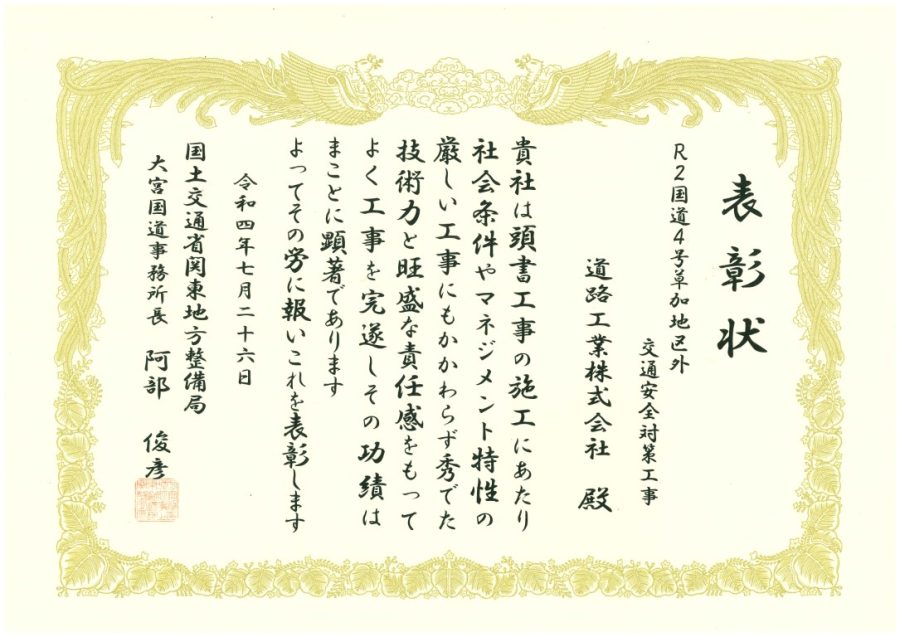 表彰状
R2国道4号草加地区外
交通安全対策工事
道路工業株式会社 殿
貴社は頭書工事の施工にあたり
社会条件やマネジメント特性の
厳しい工事にもかかわらず秀でた
技術力と旺盛な責任感をもって
よく工事を完遂しその功績は
まことに顕著であります
よってその労に報いこれを表彰します
令和四年七月二十六日
国土交通省関東地方整備局
大宮国道事務所長 阿部 俊彦